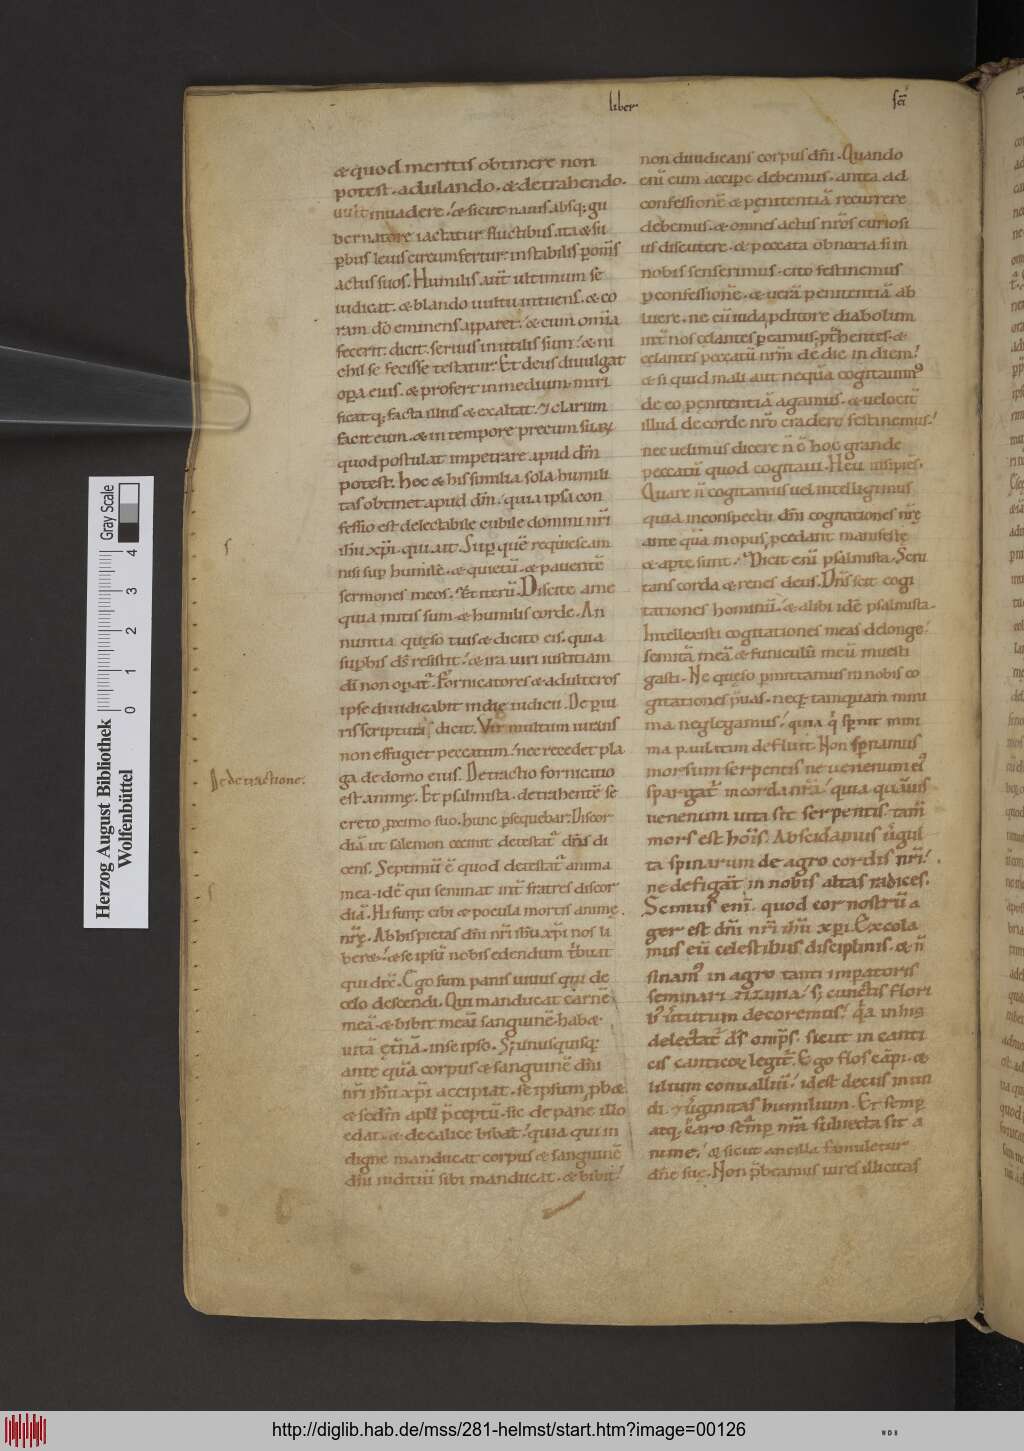 liber sc̄i
& quod meritis obtinere non
potest. adulando. & detrahendo.
uult inuadere. & sicut nauis absq; gu
bernatore iactatur fluctibus. ita & su
ꝑbus leuis circumfertur. instabilis ꝑ om̄s
actus suos. Humilis. aut̄ ultimum se
iudicat. & blando uultu intuens. & co
ram dō eminens apparet. & cum om̄ia
fecerit. dicit. seruus inutilis sum. & ni
chil se fecisse testatur. Et deus diuulgat
oꝑa eius. & profert in medium. miri
ficatq; facta illius & exaltat. & clarum
facit eum. & in tempore precum suaꝝ
quod postulat impetrare apud dn̄m
potest. hoc & his similia sola humili
tas obtinet apud dn̄m. quia ipsa con
fessio est delectabile cubile domini nr̄i
ih̄u xp̄i. qui ait. Suꝑ quē requiescam
nisi suꝑ humilē. & quietū. & pauentē
sermones meos. Et iterū. Discite a me
quia mitis sum & humilis corde. An
nuntia quęso tuis & dicito eis. quia
suꝑbis ds̄ resistit. & ira uiri iustitiam
dī non oꝑat̄. Fornicatores & adulteros
ipse diiudicabit in die iudicii. De ꝑiu
ris scriptura dicit. Vir multum iurans
non effugiet peccatum. nec recedet pla
ga de domo eius. Detractio fornicatio
est animę. Et psalmista. detrahentē se
creto ꝓximo suo. hunc ꝑsequebar. Discor
diā ut salemon cecinit detestat̄ dn̄s di
cens. Septimū ē quod detestat̄ anima
mea. idē qui seminat int̄ fratres discor
diā. Hi sunt cibi & pocula mortis animę
nr̄ę. Ab his pietas dn̄i nr̄i ih̄u xp̄i nos li
beret. & se ipsū nobis edendum tribuat
qui dix̄. Ego sum panis uiuus qui de
celo descendi. Qui manducat carnē
meā & bibit meū sanguinē. habet
uitā ęt̄nā. in se ipso. Sꝫ unusquisq;
ante quā corpus & sanguinē dn̄i
nr̄i ih̄u xp̄i accipiat. se ipsum ꝓbet.
& scdm̄ apl̄i p̄ceptū. sic de pane illo
edat. & de calice bibat. quia qui in
digne manducat corpus & sanguinē
dn̄i iuditiū sibi manducat. & bibit.
De detractione.
non diiudicans corpus dn̄i. Quando
eni eum accipe debemus. antea ad
confessionē & penitentiā recurrere
debemus. & omnes actus nr̄os curiosi
us discutere. & peccata obnoxia si in
nobis senserimus. cito festinemus
ꝑ confessionē. & uerā penitentiā ab
luere. ne cū iuda ꝓditore diabolum
int̄ nos celantes pereamus.
celantes peccatū nr̄m de die in diem.
& si quid mali aut nequā cogitauim᾽
de eo penitentiā agamus. & uelocit̄
illud de corde nr̄o eradere festinemus.
nec uelimus dicere n̄ ē hoc grande
peccatū quod cogitaui. Heu insipiēs.
Quare n̄ cogitamus uel intelligimus
quia in conspectu dn̄i cogitationes nr̄ę
ante quā in opus ꝓcedant manifestę
& aꝑtę sunt. Dicit enī psalmista. Scru
tans corda & renes deus. Dn̄s scit cogi
tationes hominū. & alibi idē psalmista.
Intellexisti cogitationes meas de longe.
semitā meā & funiculū meū inuesti
gasti. Ne quęso ꝑmittamus in nobis co
gitationes ꝓuas. neq; tamquam mini
ma neglegamus. quia q̄ spernit mini
ma paulatim defluit. Non spernamus
morsum serpentis ne uenenum ei᾽
spargat̄ in corda nr̄a. quia quāuis
uenenum uita sit serpentis. tam̄
mors est hōis. Abscidamus u̇gul
ta spinarum de agro cordis nr̄i.
ne defigat̄ in nobis altas radices.
Scimus enī. quod cor nostrū a
ger est dn̄i nr̄i ih̄u xp̄i. Excola
mus eū celestibus disciplinis. & n̄
sinam᾽ in agro tanti imꝑatoris
seminari zizania. sꝫ cunctis flori
b᾽ u̇tutum decoremus. qa in his
delectat̄ ds̄ omps̄. sicut in canti
cis canticoꝝ legit̄. Ego flos cāpi. &
lilium conualliū. id est decus mun
di. & u̇ginitas humilium. Et semꝑ
atq; caro semꝑ nr̄a subiecta sit a
nimę. & sicut ancilla famuletur
dn̄e suę. Non p̄beamus uires illicitas
Herzog August Bibliothek
Wolfenbüttel
0 1 2 3 4
Gray Scale
http://diglib.hab.de/mss/281-helmst/start.htm?image=00126